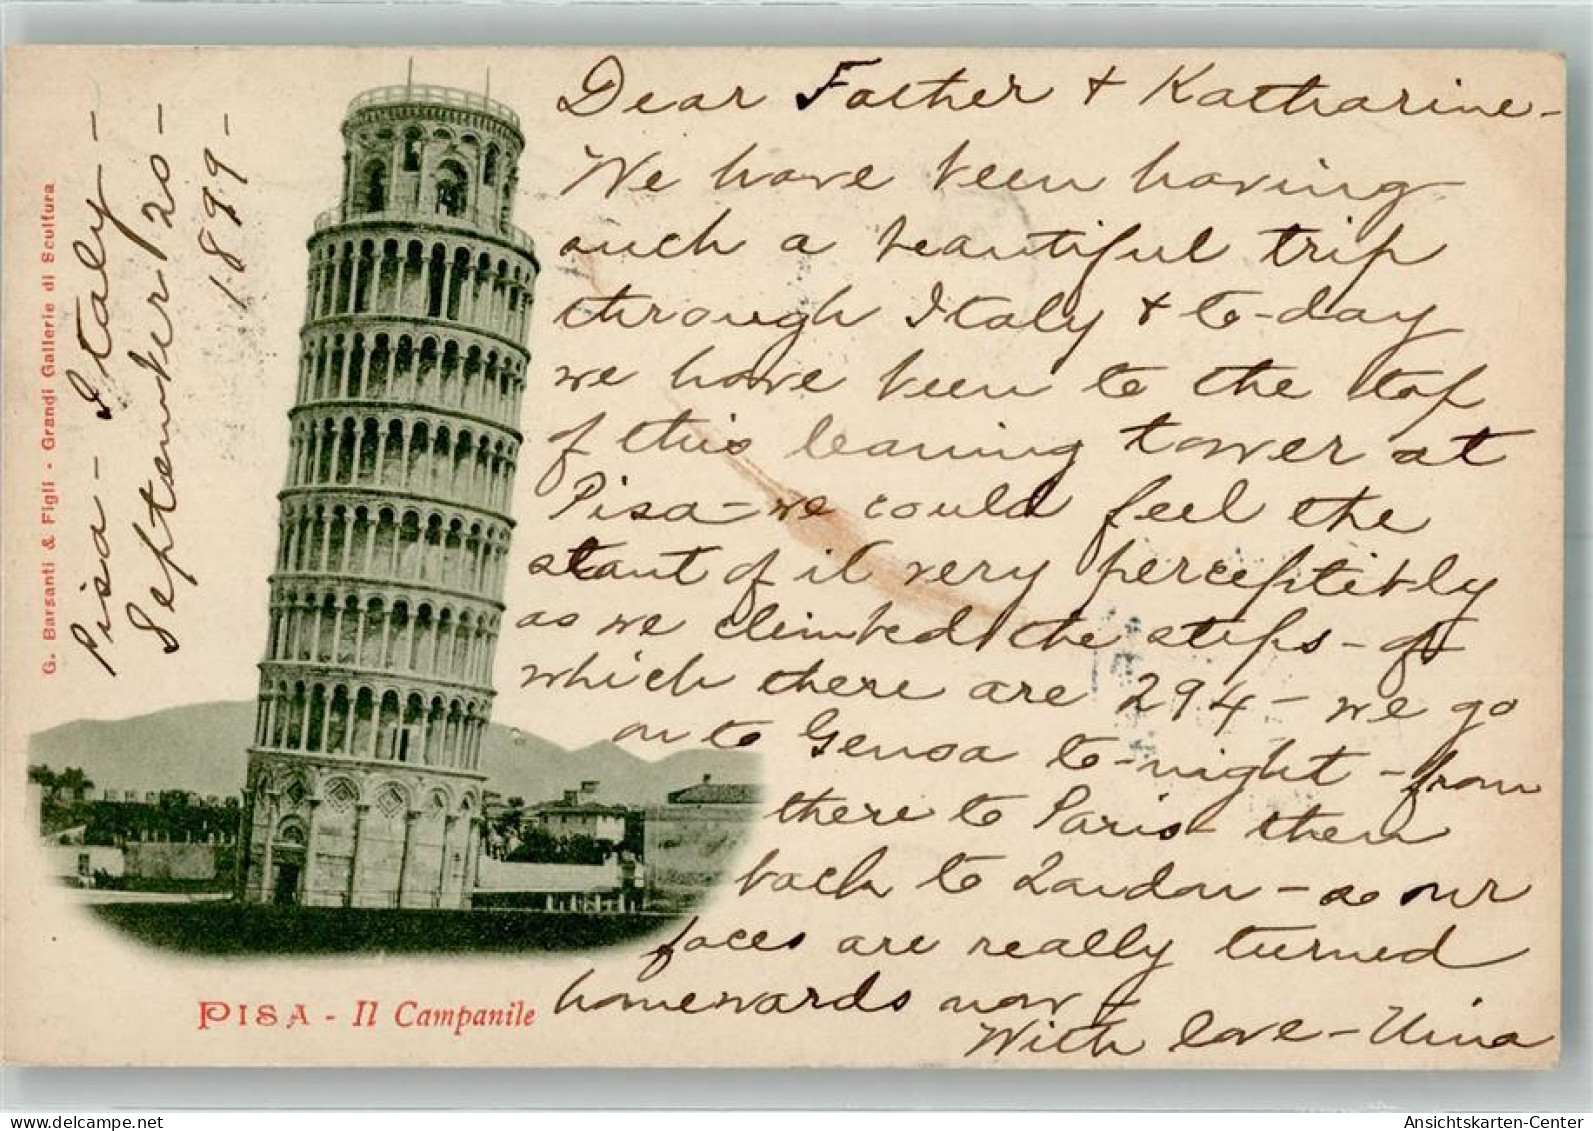 Pisa - Italy -
September 20 -
1899 -
G. Barsanti & Figli - Grandi Gallerie di Scultura
Dear Father + Katharine -
We have been having
such a beautiful trip
through Italy + to-day
we have been to the top
of this leaning tower at
Pisa - we could feel the
slant of it very perceptibly
as we climbed the steps - of
which there are 294 - we go
on to Genoa to-night - from
there to Paris - then
back to London - so our
faces are really turned
homewards now -
With love - Nina
PISA - Il Campanile
Ansichtskarten-Center